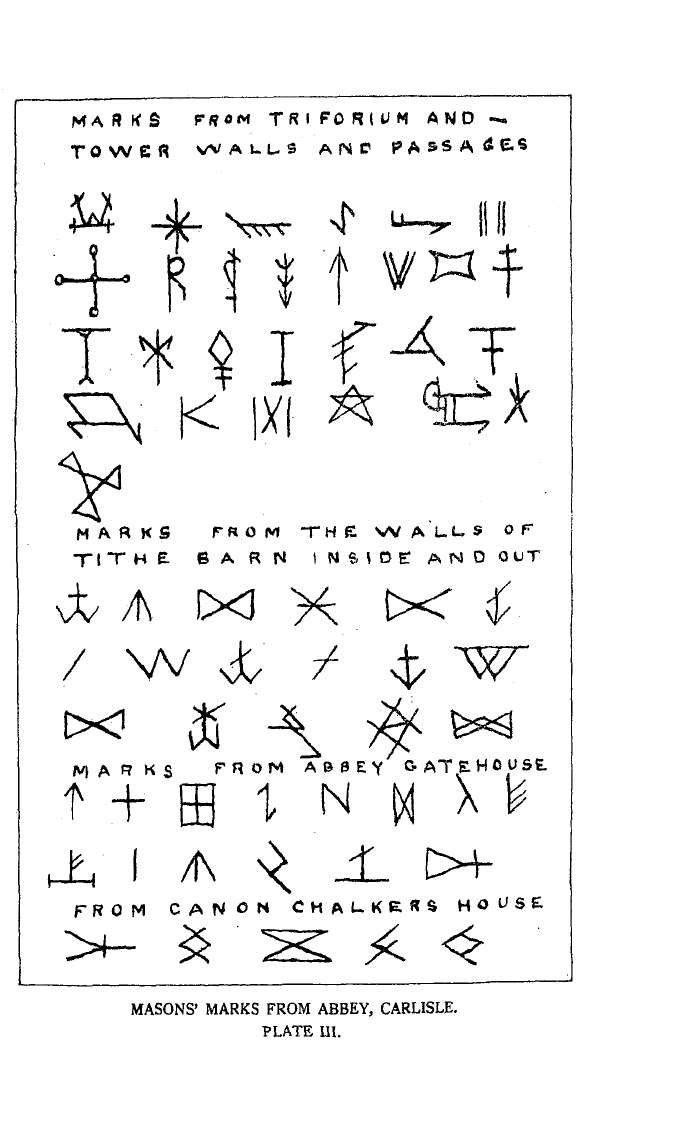 MARKS FROM TRIFORIUM AND ~
TOWER WALLS AND PASSAGES
MARKS FROM THE WALLS OF
TITHE BARN INSIDE AND OUT
MARKS FROM ABBEY GATEHOUSE
FROM CANON CHALKERS HOUSE
MASONS' MARKS FROM ABBEY, CARLISLE.
PLATE III.